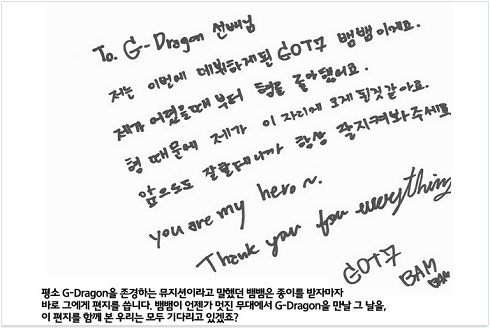 To. G-Dragon 선배님
저는 이번에 데뷔하게된 GOT7 뱀뱀 이에요.
제가 어렸을때 부터 형을 좋아했어요.
형 때문에 제가 이 자리에 오게 된것 같아요.
앞으로도 잘할테니까 항상 잘지켜봐주세요
you are my hero ~.
Thank you for everything
GOT7
BAM BAM
평소 G-Dragon을 존경하는 뮤지션이라고 말했던 뱀뱀은 종이를 받자마자
바로 그에게 편지를 씁니다. 뱀뱀이 언젠가 멋진 무대에서 G-Dragon을 만날 그 날을,
이 편지를 함께 본 우리는 모두 기다리고 있겠죠?